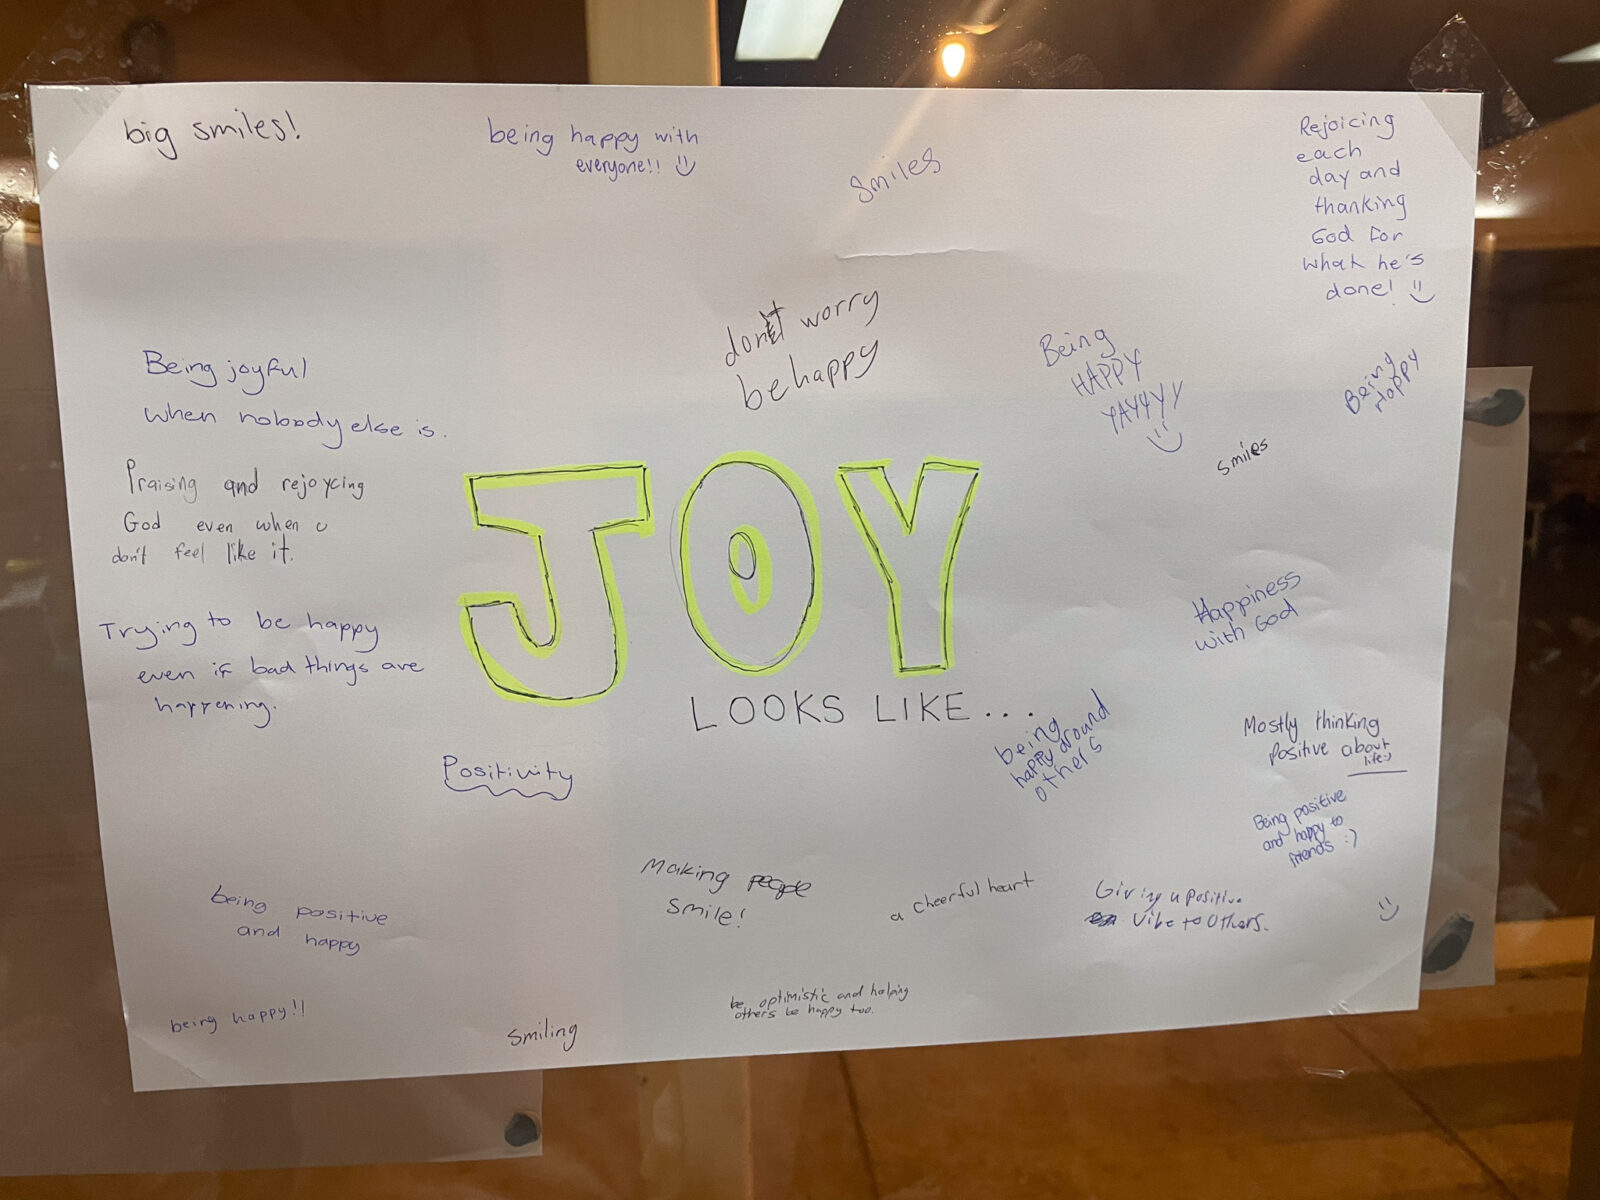 big smiles!
being happy with
everyone!!
smiles
Rejoicing
each
day and
thanking
God for
what he's
done!
don't worry
be happy
Being
HAPPY
YAYYYY
Being
Happy
smiles
Being joyful
when nobody else is.
Praising and rejoycing
God even when u
don't feel like it.
Trying to be happy
even if bad things are
happening.
JOY
LOOKS LIKE...
Happiness
with God
being
happy around
others
Mostly thinking
positive about
life:)
Positivity
Being positive
and happy to
friends :)
Making people
smile!
a cheerful heart
Giving a positive
vibe to others.
being positive
and happy
being happy!!
smiling
be optimistic and helping
others be happy too.